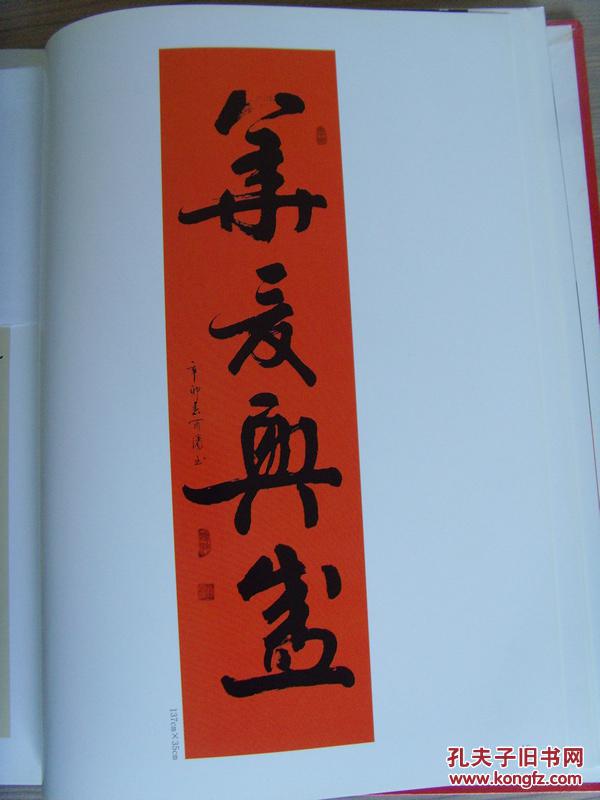 華夏興盛
辛卯春
137cm×35cm
孔夫子旧书网
www.kongfz.com